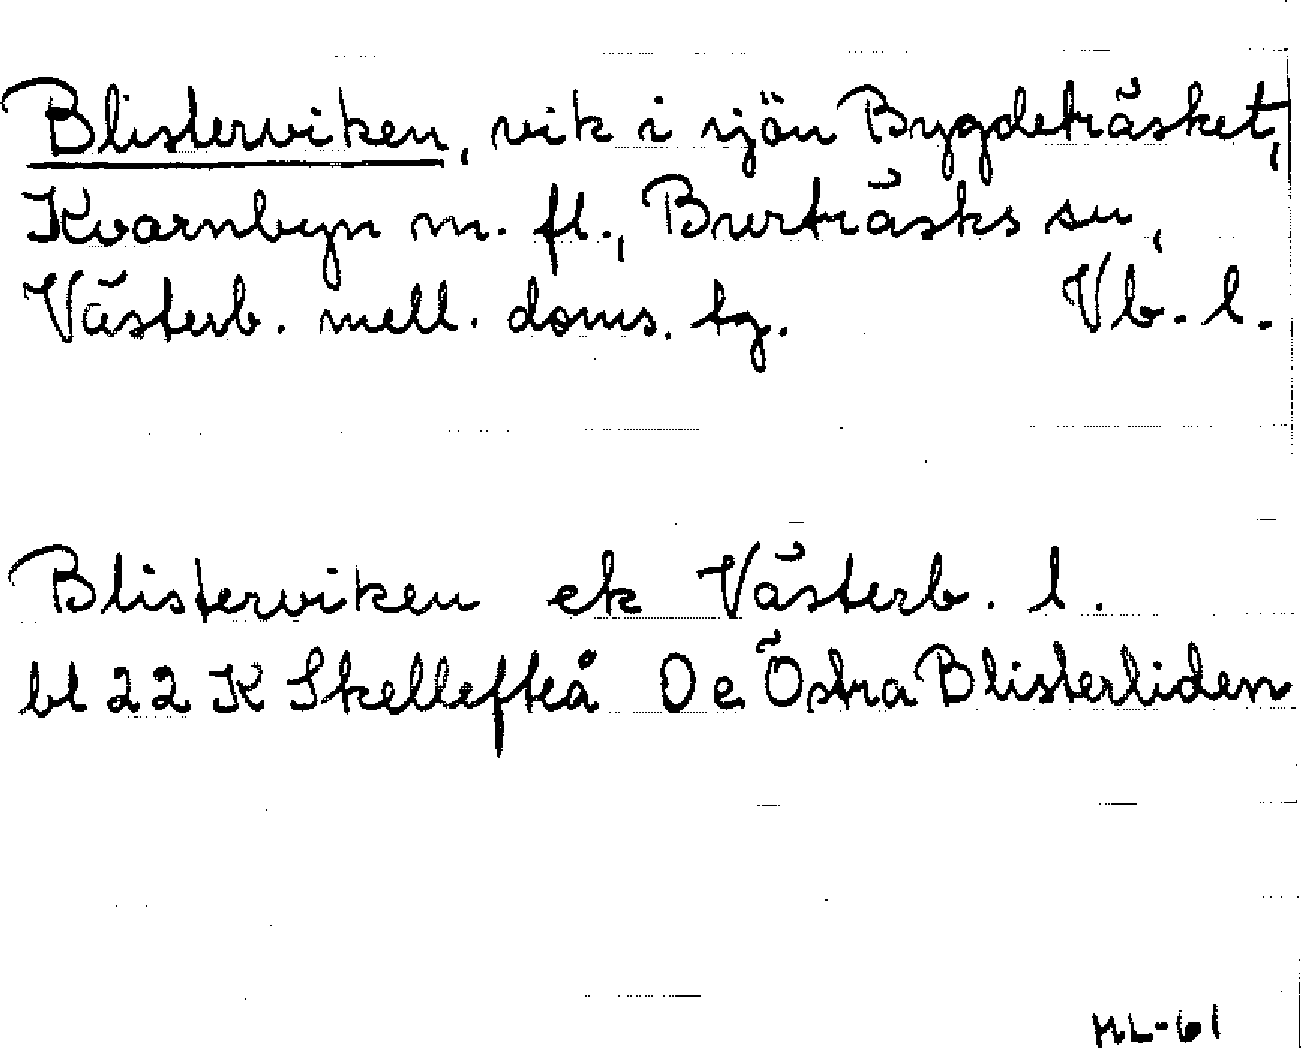 Blisterviken, vik i sjön Bygdeträsket,
Kvarnbyn m. fl., Burträsks sn,
Västerb. mell. doms. tg. Vb. l.
Blisterviken ek Västerb. l.
bl 22 K Skellefteå Oe Östra Blisterliden
ML-61